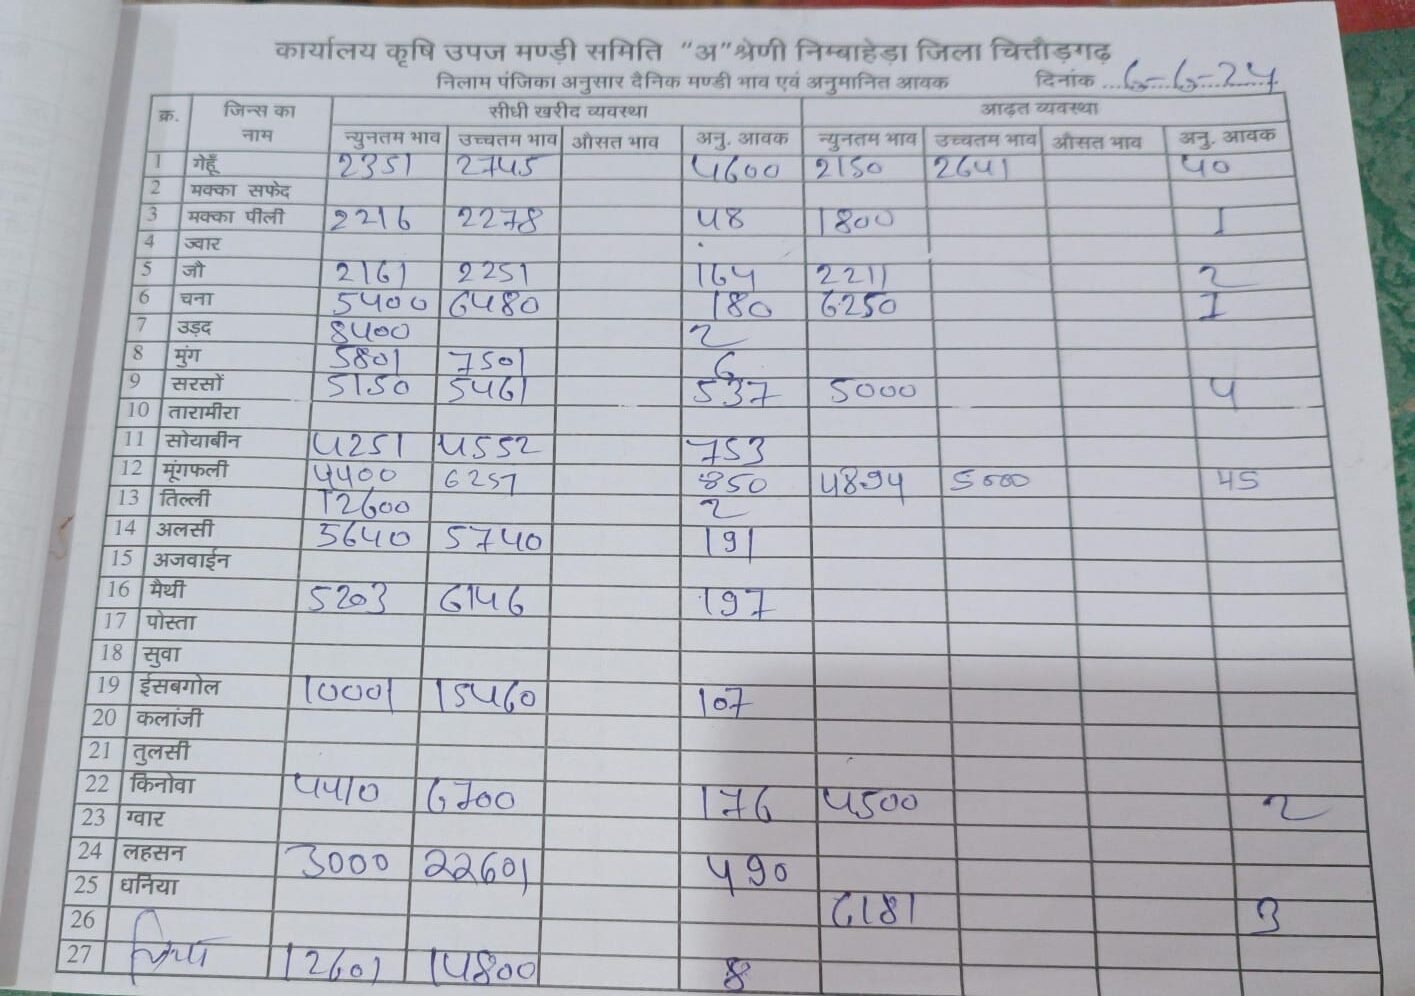 कार्यालय कृषि उपज मण्डी समिति "अ" श्रेणी निम्बाहेड़ा जिला चित्तौड़गढ़
निलाम पंजिका अनुसार दैनिक मण्डी भाव एवं अनुमानित आवक दिनांक 6-6-24
क्र. जिन्स का नाम सीधी खरीद व्यवस्था आढ़त व्यवस्था
न्युनतम भाव उच्चतम भाव औसत भाव अनु. आवक न्युनतम भाव उच्चतम भाव औसत भाव अनु. आवक
1 गेहूँ 2351 2745 4600 2150 2641 40
2 मक्का सफेद
3 मक्का पीली 2216 2278 48 1800 1
4 ज्वार
5 जौ 2161 2251 164 2211 2
6 चना 5400 6480 180 6250 1
7 उड़द 8400 2
8 मुंग 5801 7501 6
9 सरसों 5150 5461 537 5000 4
10 तारामीरा
11 सोयाबीन 4251 4552 753
12 मूंगफली 4400 6251 850 4894 5000 45
13 तिल्ली 12600 2
14 अलसी 5640 5740 191
15 अजवाईन
16 मैथी 5203 6146 197
17 पोस्ता
18 सुवा
19 ईसबगोल 10001 15460 107
20 कलांजी
21 तुलसी
22 किनोवा 4410 6700 176 4500 2
23 ग्वार
24 लहसन 3000 22601 490
25 धनिया 6181 3
26
27 12601 14800 8